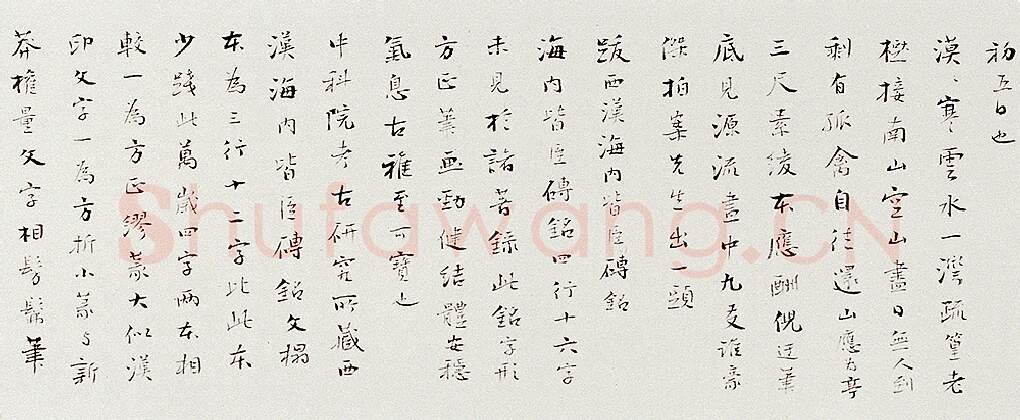 初五日也
漠〻寒雲水一灣疏篁老
樹接南山空山盡日無人到
剩有孤禽自往還山應為亭
三尺素綾本應酬倪迂筆
底見源流畫中九友誰豪
傑拍案先生出一頭
跋西漢海內皆臣磚銘
海內皆臣磚銘四行十六字
未見於諸著錄此銘字形
方正筆畫勁健結體安穩
氣息古雅至可寶也
中科院考古研究所藏西
漢海內皆臣磚銘文搨
本為三行十二字比此本
少踐此萬歲四字兩本相
較一為方正繆篆大似漢
印文字一為方折小篆與新
莽權量文字相髣髴筆
Shufawang.CN